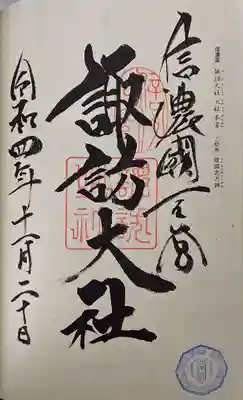 諏訪大社 上社本宮 ご祭神 建御名方神
信濃國一之宮
諏訪大社
令和四年十一月二十日